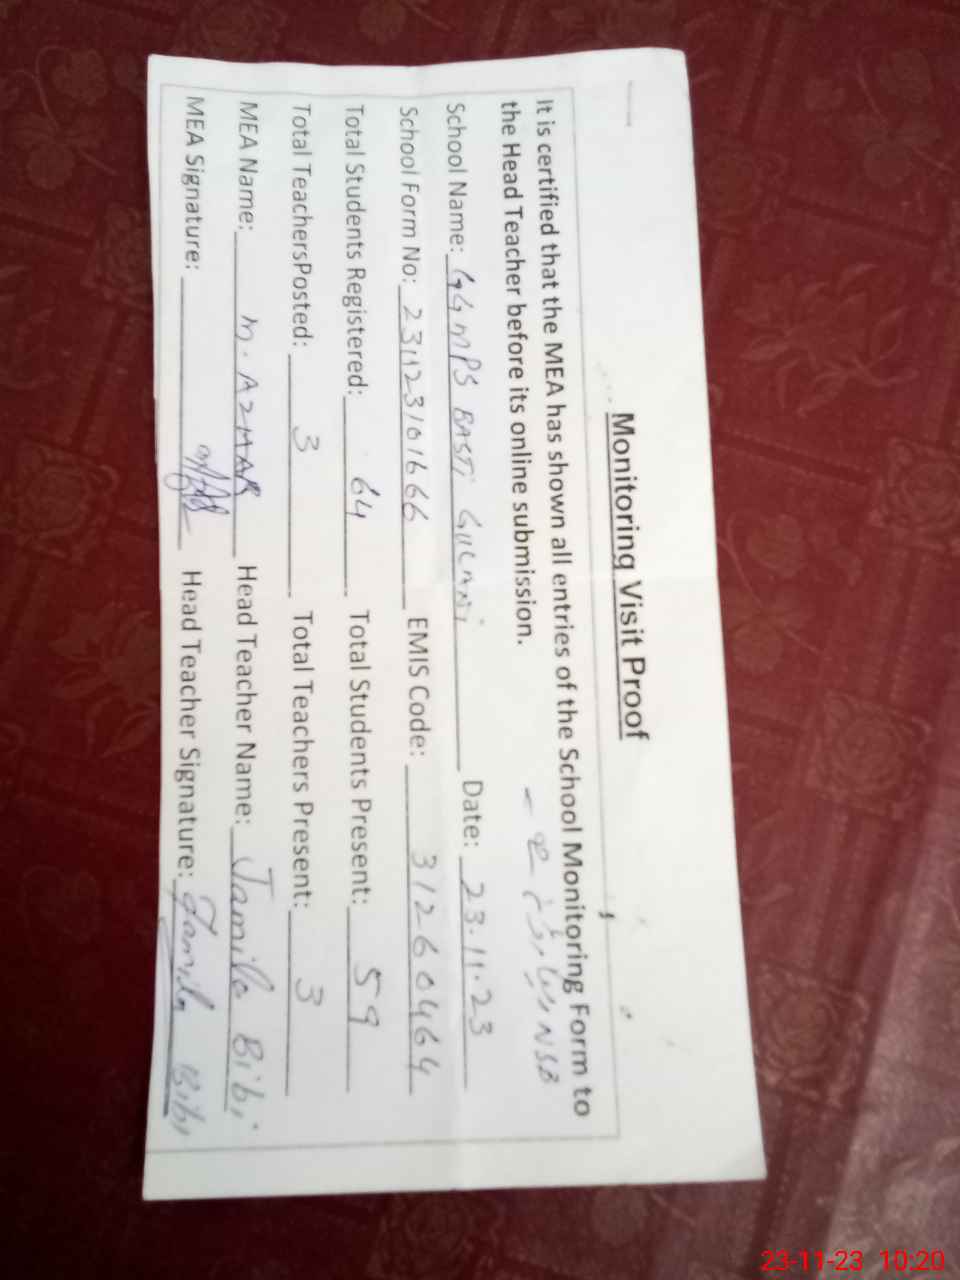 Monitoring Visit Proof
It is certified that the MEA has shown all entries of the School Monitoring Form to
the Head Teacher before its online submission.
NSB
School Name: GGMPS BASTI Date: 23.11.23
School Form No: 231123101666 EMIS Code: 31260464
Total Students Registered: 64 Total Students Present: 59
Total TeachersPosted: 3 Total Teachers Present: 3
MEA Name: M. AZHAR Head Teacher Name: Jamila Bibi
MEA Signature: Head Teacher Signature: Jamila Bibi
23-11-23 10:20